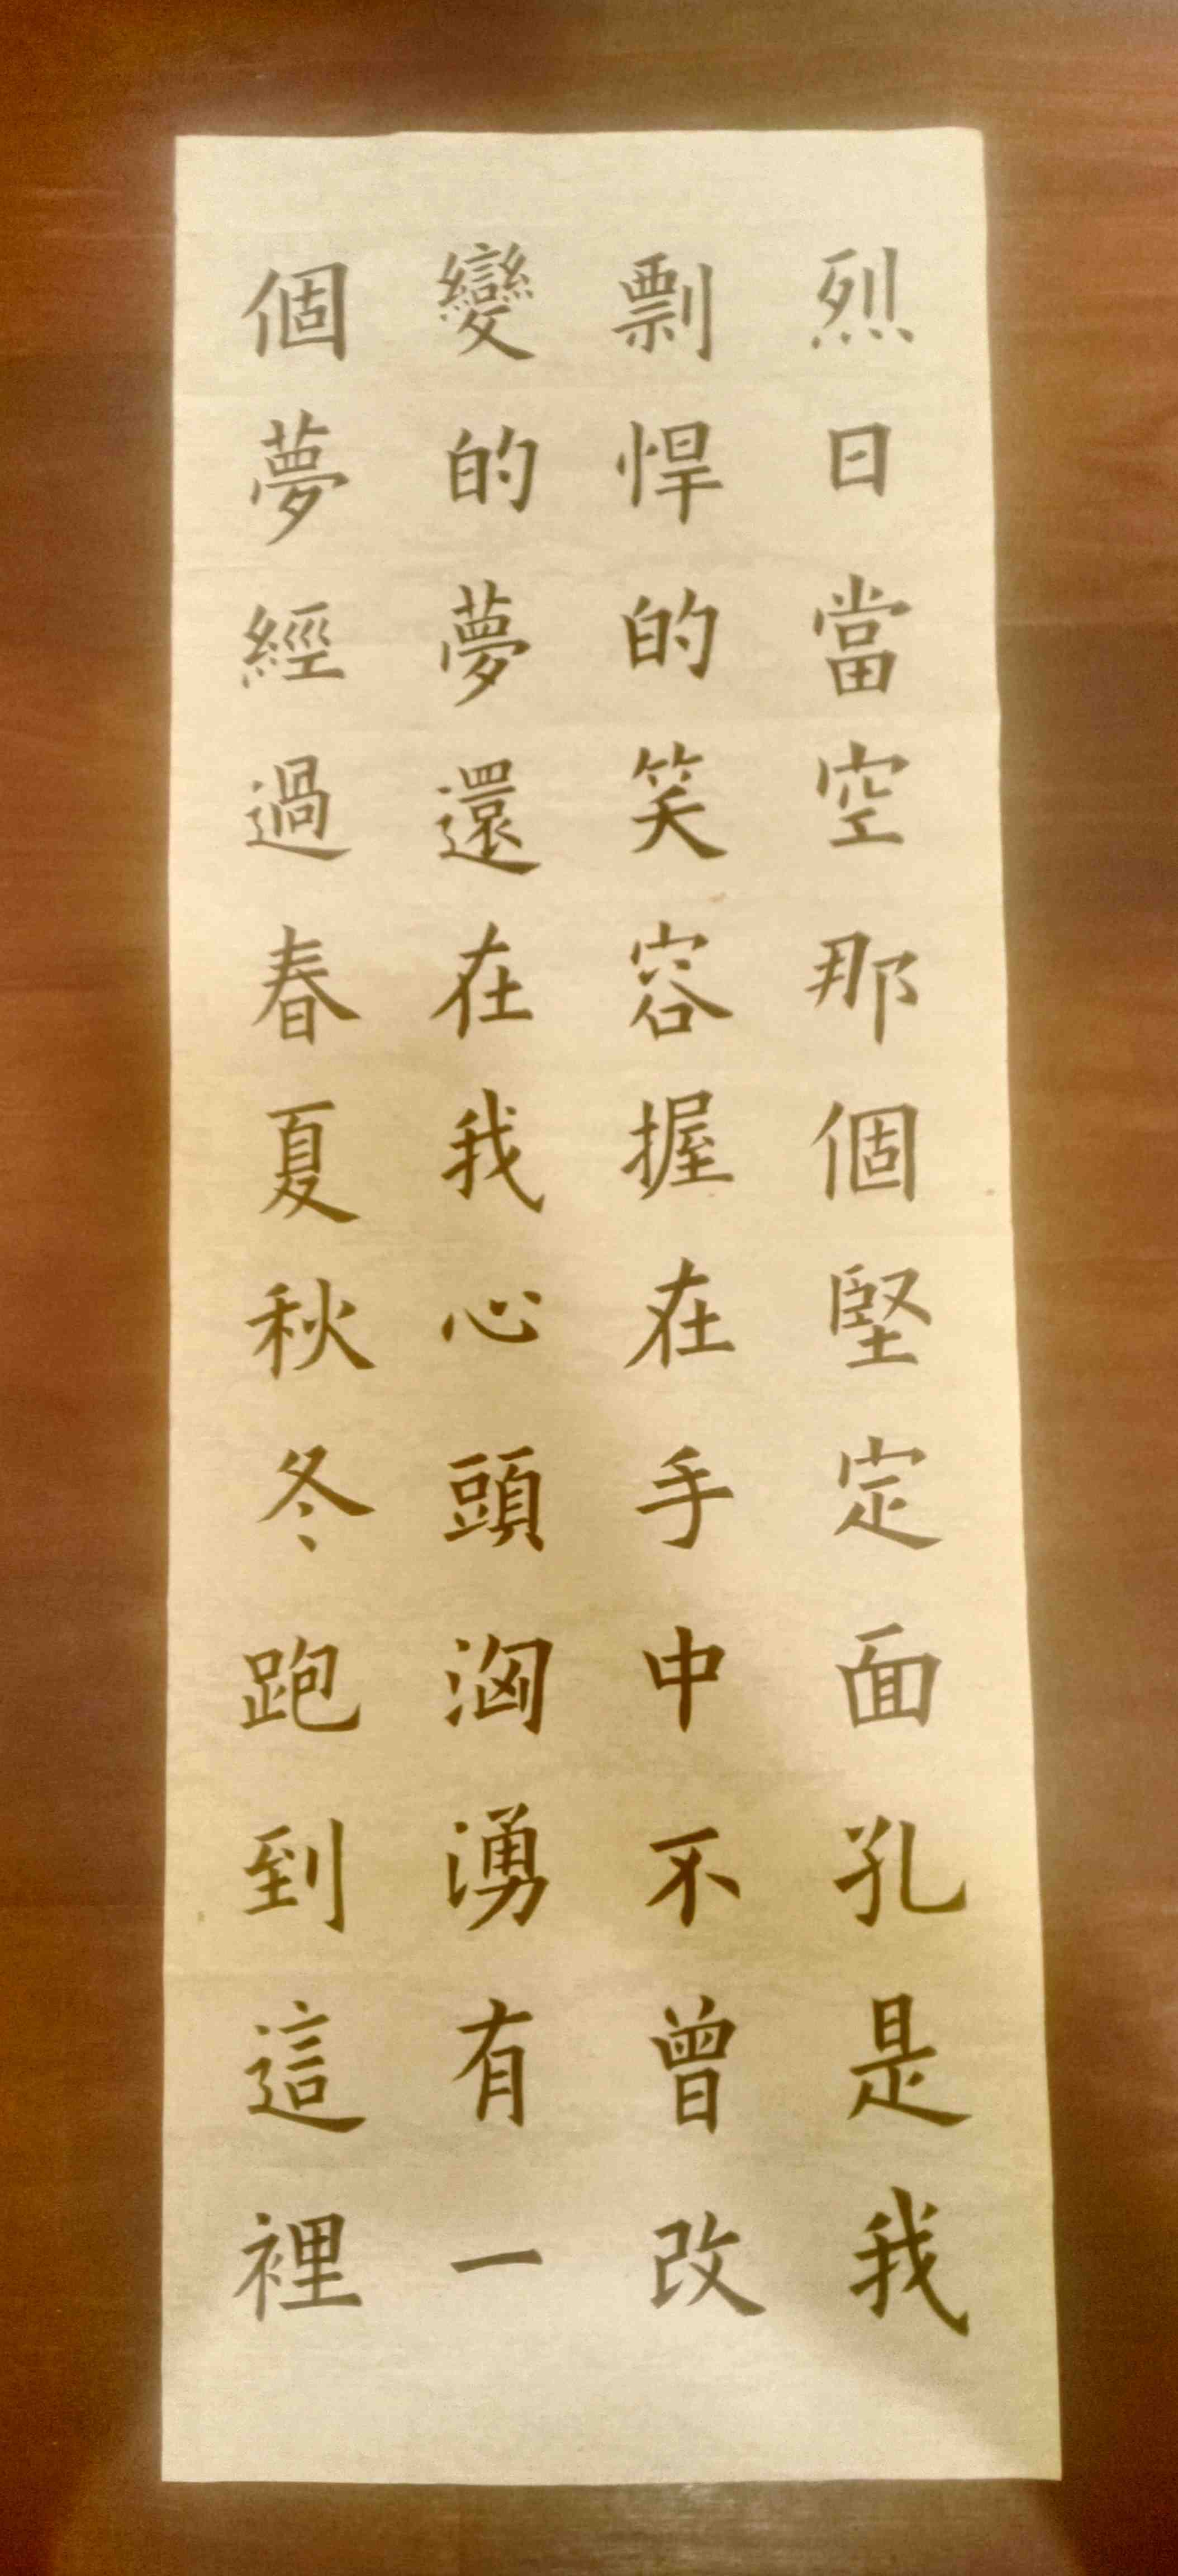 烈日當空那個堅定面孔是我
剽悍的笑容握在手中不曾改
變的夢還在我心頭洶湧有一
個夢經過春夏秋冬跑到這裡